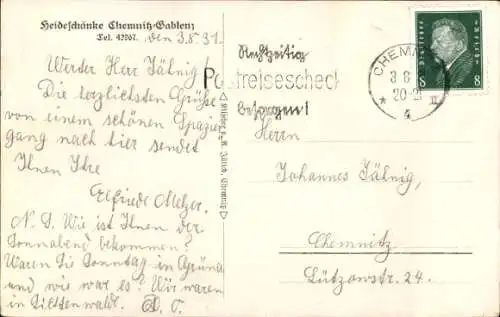 Heideschänke Chemnitz-Gablenz
Tel. 42767.
den 3.8.31.
Werter Herr Jähnig!
Die herzlichsten Grüße
von einem schönen Spazier
gang nach hier sendet
Ihnen Ihre
Elfriede Melzer.
N. S. Wie ist Ihnen der
Sonnabend bekommen?
Waren Sie Sonntag in Grüna
und wie war es? Wir waren
in
Rechtzeitig
Postreisescheck
besorgen!
CHEMNITZ
3 8
20-21
* 4 II
DEUTSCHES REICH
8 8
Herrn
Johannes Jähnig,
Chemnitz
Lützowstr. 24.